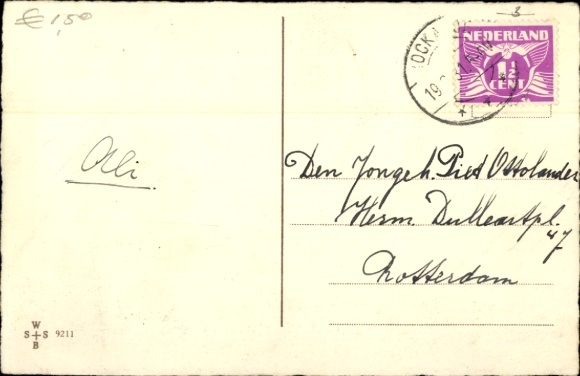 € 1,50
3
NEDERLAND
1½
CENT
Ali
Den Jongeh. Piet Ottolander
Herm. Dulleartpl.
47
Rotterdam
W
S+S 9211
B